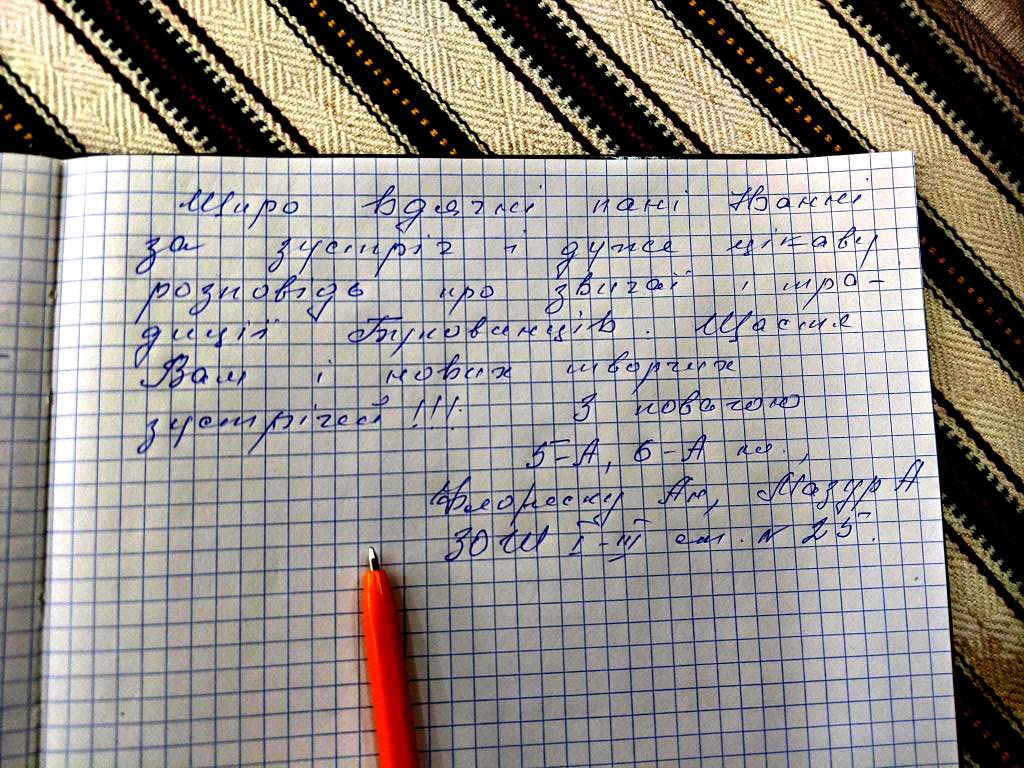 Щиро вдячні пані Іванні
за зустріч і дуже цікаву
розповідь про звичаї і тра-
диції Буковинців. Щастя
Вам і нових творчих
зустрічей!!! З повагою
5-А, 6-А кл.,
Флореску Ан, Мазур А
ЗОШ I-III ст. N 25.